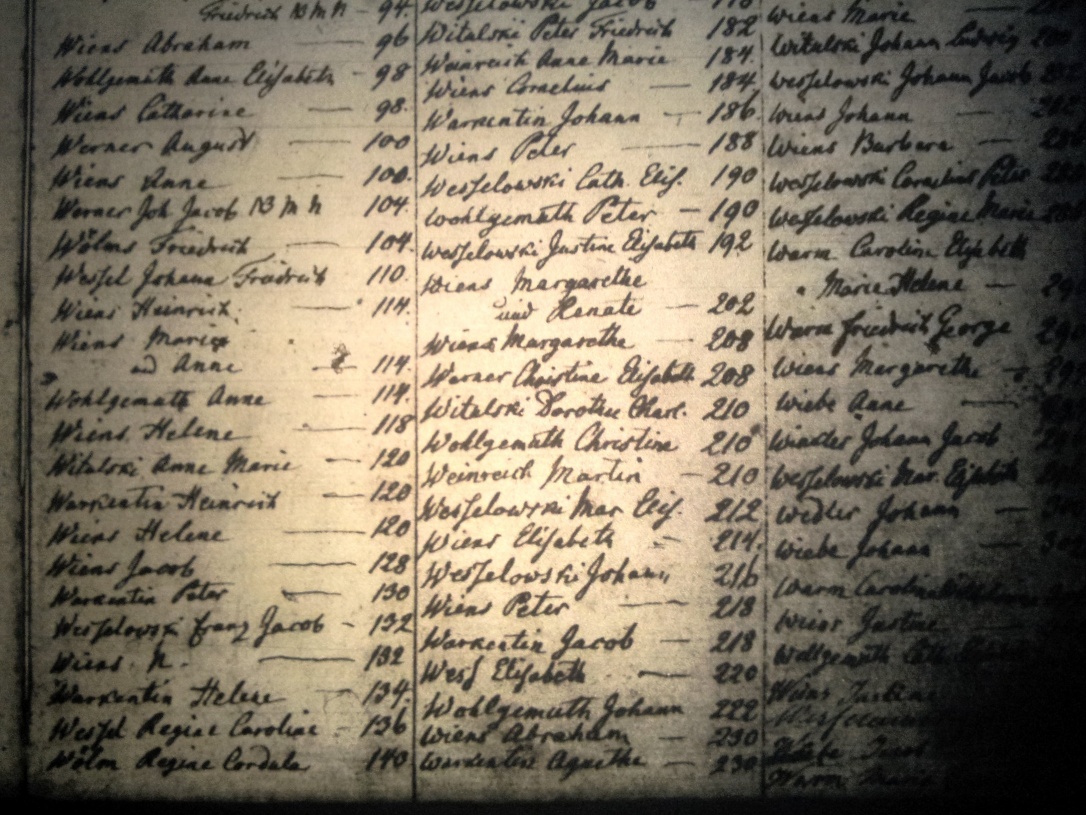 Friedrich B M N - 94.
Wiens Abraham — 96
Wohlgemuth Anne Elisabeth - 98
Wiens Catharine — 98.
Werner August — 100
Wiens Anne — 100.
Werner Joh Jacob B M N 104.
Wölms Friedrich — 104.
Weſsel Johann Friedrich 110.
Wiens Heinrich. — 114.
Wiens Marie
und Anne — 114.
Wohlgemuth Anne — 114.
Wiens Helene — 118
Witulski Anne Marie — 120
Warkentin Heinrich — 120
Wiens Helene — 120
Wiens Jacob — 128
Warkentin Peter — 130
Weſselowski Franz Jacob - 132
Wiens N. — 132
Warkentin Helene — 134.
Weſsel Regine Caroline - 136
Wölm Regine Cordula 140
Weſselowski Jacob
Witulski Peter Friedrich 182
Weinreich Anne Marie 184.
Wiens Cornelius — 184.
Warkentin Johann — 186.
Wiens Peter — 188
Weſselowski Cath. Eliſ. 190
Wohlgemuth Peter — 190
Weſselowski Justine Elisabeth 192.
Wiens Margarethe
und Renate — 202
Wiens Margarethe — 208
Werner Christine Elisabeth 208
Witulski Dorothe Charl. 210
Wohlgemuth Christine 210
Weinreich Martin — 210
Weſselowski Mar Eliſ. 212
Wiens Elisabeth - 214.
Weſselowski Johann 216
Wiens Peter — 218
Warkentin Jacob — 218
Weſs Elisabeth — 220
Wohlgemuth Johann 222
Wiens Abraham — 230
Warkentin Agnethe — 230
Wiens Marie
Witulski Johann Ludwig
Weſselowski Johann Jacob
Wiens Johann —
Wiens Barbara —
Weſselowski Cornelius Peter
Weſselowski Regine Marie
Warm Caroline Elisabeth
Marie Helene —
Warm Friedrich George
Wiens Margarethe -
Wiebe Anne —
Johann Jacob
Weſselowski Mar. Elisabeth
Wedler Johann —
Wiebe Johann —
Warm Caroline
Wiens Justine
Wohlgemuth
Wiens Justine
Warm